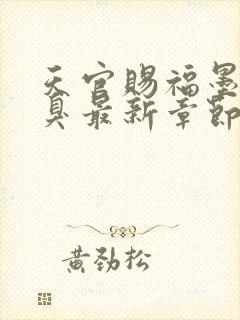 天官赐福墨
臭最新章節
黄劲松